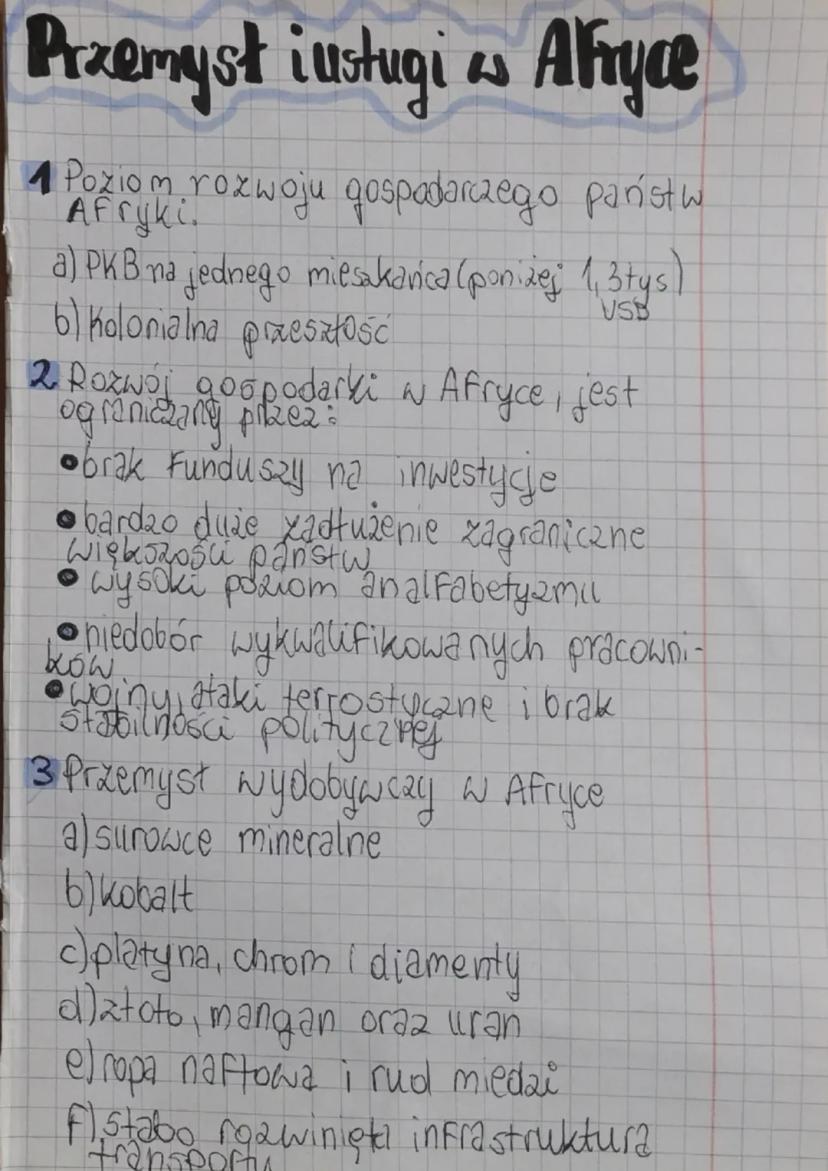 Przemysł i usługi w Afryce
1 Poziom rozwoju gospodarczego państw
Afryki.
a) PKB na jednego mieszkańca (poniżej 1,3 tys)
USD
b) Kolonialna przeszłość
2 Rozwój gospodarki w Afryce, jest
ograniczany przez:
• brak funduszy na inwestycje
• bardzo duże zadłużenie zagraniczne
większości państw
• wysoki poziom analfabetyzmu
• niedobór wykwalifikowanych pracowni-
ków
• wojny, ataki terrostyczne i brak
stabilności politycznej
3 Przemysł wydobywczy w Afryce
a) surowce mineralne
b) kobalt
c) platyna, chrom i diamenty
d) złoto, mangan oraz uran
e) ropa naftowa i rud miedzi
f) słabo rozwinięta infrastruktura
transportu